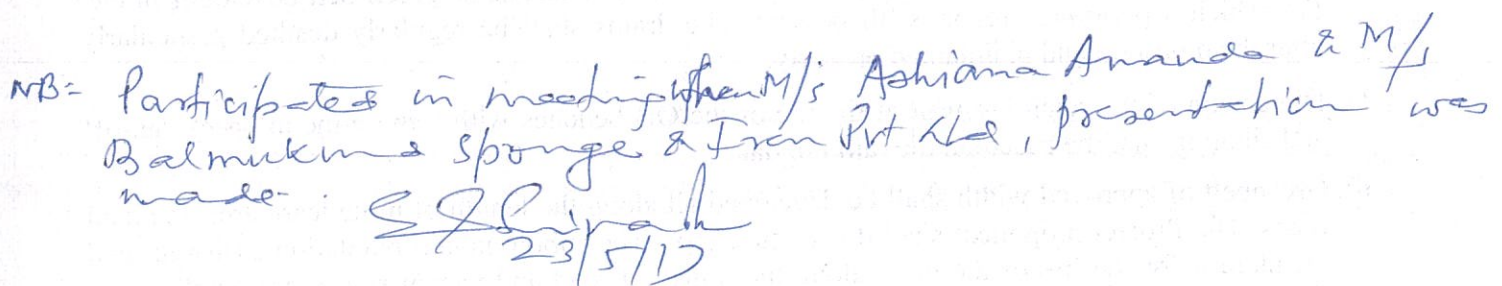 NB:- Participated in meeting when M/s Ashiana Ananda & M/s
Balmukund Sponge & Iron Pvt Ltd, presentation was
made.
23/5/17